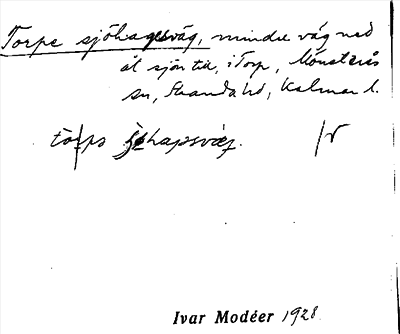 Torpe sjöhagesväg, mindre väg ned
åt sjön till, i Torp, Mönsterås
sn, Stranda hd, Kalmar l.
tòrps ʃøhapsvæg.
Ivar Modéer 1928